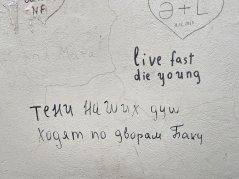 -NF
Ə+L
live fast
die young
тени наших душ
ходят по дворам Баку